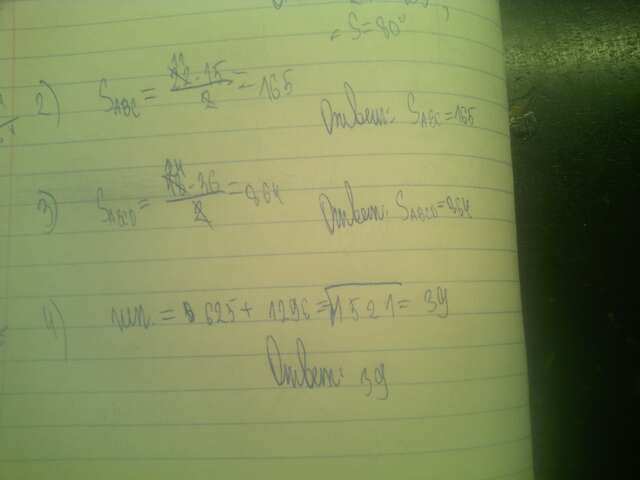 S=80
2) S ABC = 22·15/2 = 165
Ответ: S ABC = 165
3) S ABCD = 48·36/2 = 864
Ответ: S ABCD = 864
4) = 625 + 1296 = √1521 = 39
Ответ: 39